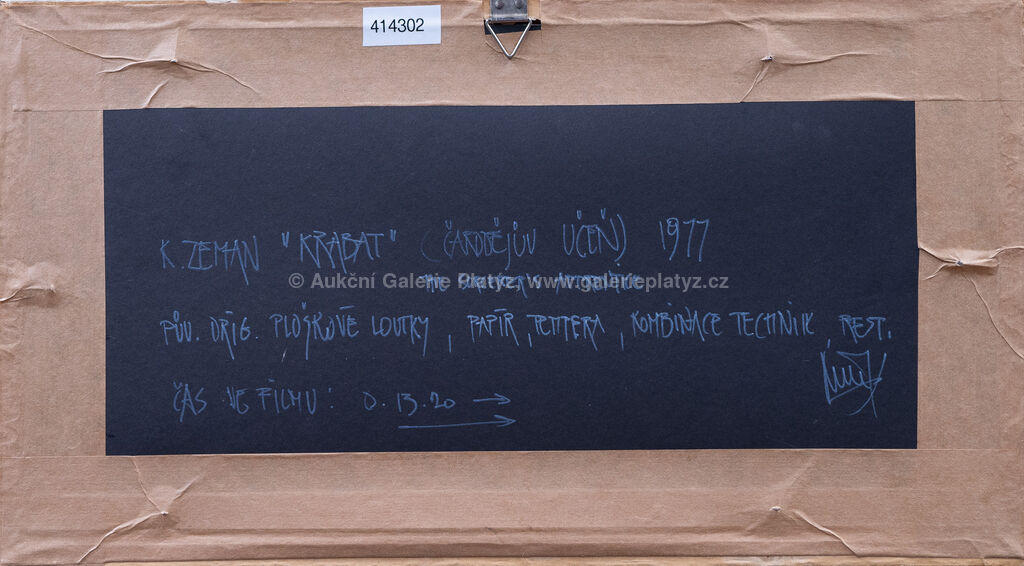 414302
K. ZEMAN "KŘABAT" (ČARODĚJŮV UČEŇ) 1977
© Aukční Galerie Platýz, www.galerieplatyz.cz
PŮV. OŘIG. PLOŠKOVÉ LOUTKY, PAPÍR, TEMPERA, KOMBINACE TECHNIK REST.
ČAS VE FILMU: 0.13.20 →